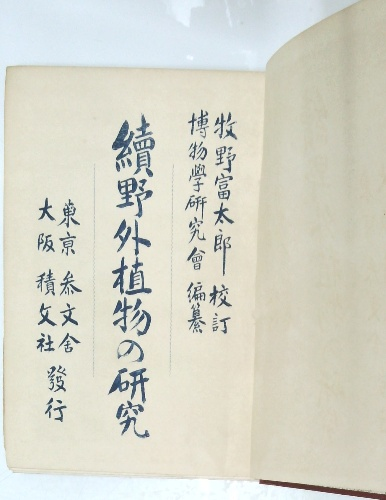 牧野富太郎 校訂
博物學硏究會 編纂
續野外植物の硏究
東京 参文舍
大阪 積文社 發行